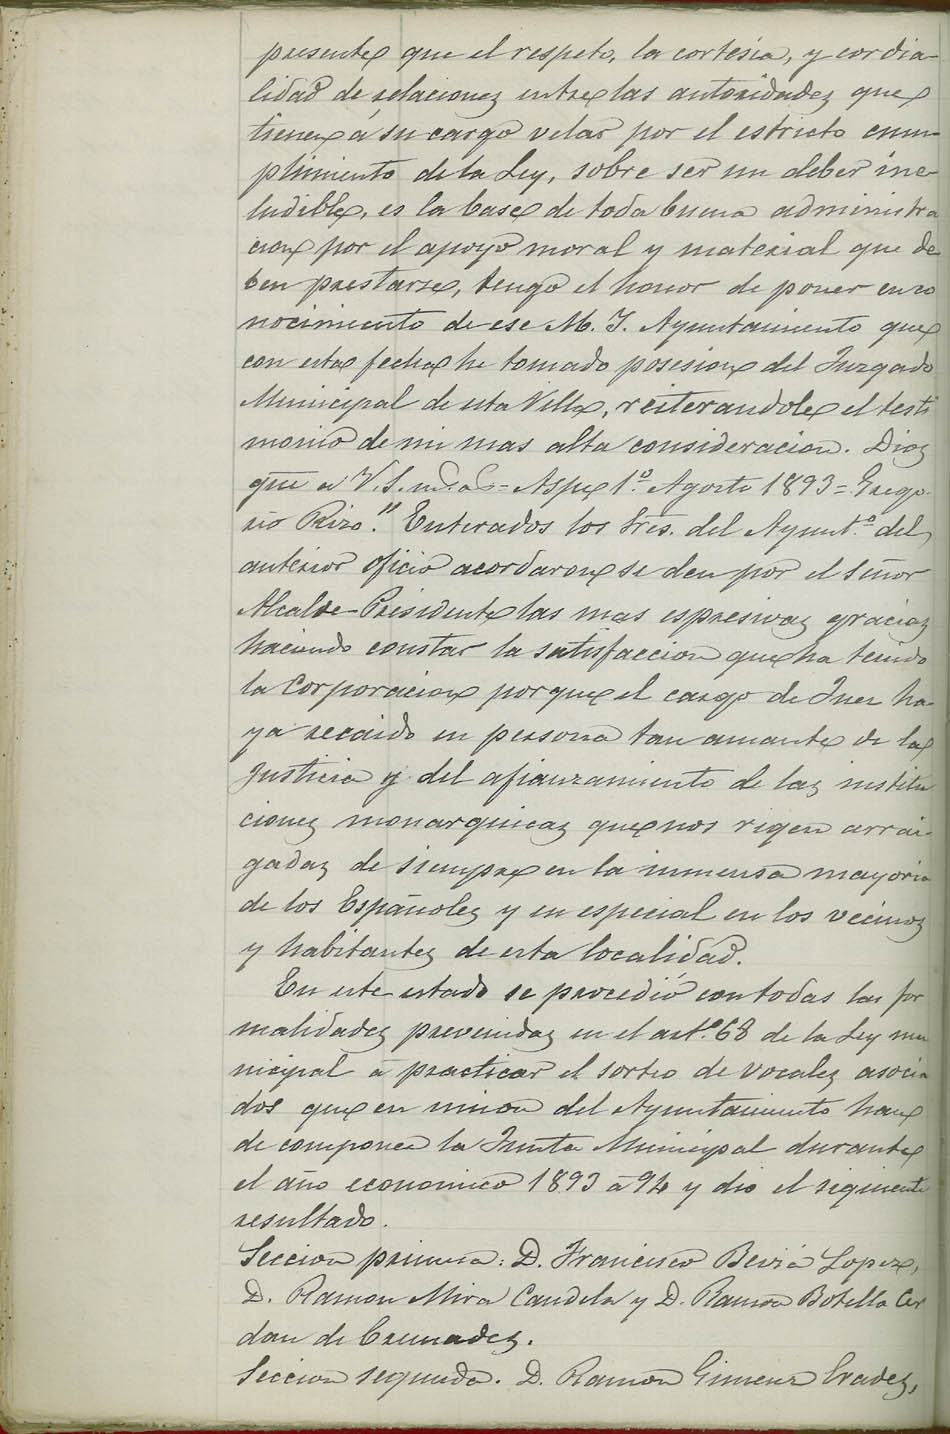 presente que el respeto, la cortesia, y cordia-
lidad de relaciones entre las autoridades que
tienen á su cargo velar por el estricto cum-
plimiento de la Ley, sobre ser un deber ine-
ludible, es la base de toda buena administra
cion por el apoyo moral y material que de
ben prestarse, tengo el honor de poner en co
nocimiento de ese M. I. Ayuntamiento que
con esta fecha he tomado posesion del Juzgado
Municipal de esta Villa, reiterandole el testi
monio de mi mas alta consideracion. Dios
gue á V. S. m.s a.s = Aspe 1.º Agosto 1893 = Grego-
rio Rizo." Enterados los Sres. del Ayunt.º del
anterior oficio acordaron se den por el Señor
Alcalde Presidente las mas espresivas gracias
haciendo constar la satisfaccion que ha tenido
la Corporacion porque el cargo de Juez ha-
ya recaido en persona tan amante de la
Justicia y del afianzamiento de las institu
ciones monarquicas que nos rigen arrai-
gadas de siempre en la inmensa mayoria
de los Españoles y en especial en los vecinos
y habitantes de esta localidad.
En este estado se procedió con todas las for
malidades prevenidas en el art.º 68 de la Ley mu
nicipal á practicar el sorteo de vocales asocia
dos que en union del Ayuntamiento han
de componer la Junta Municipal durante
el año economico 1893 á 94 y dio el siguiente
resultado.
Seccion primera: D. Francisco Beviá Lopez,
D. Ramon Mira Candela y D. Ramon Botella Cer
dan de Cremades.
Seccion segunda. D. Ramon Gimenez Prades,